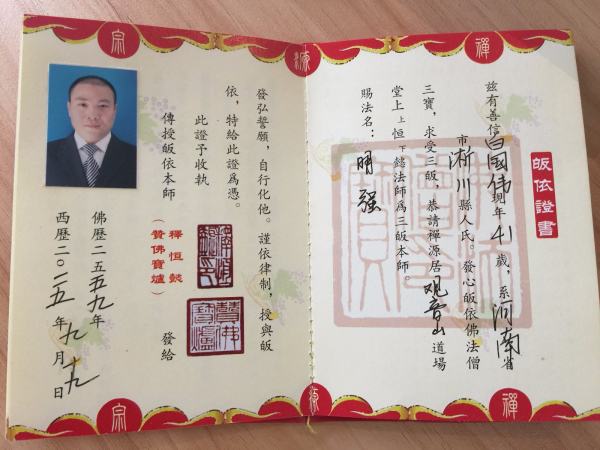 禪
源
宗
皈依證書
茲有善信白国伟現年41歲，系河南省
市淅川縣人氏。發心皈依佛法僧
三寶，求受三皈，恭請禪源居观音山道場
堂上上恒下懿法師爲三皈本師。
賜法名：明强
發弘誓願，自行化他。謹依律制，授與皈
依，特給此證爲憑。
此證予收執
傳授皈依本師
釋恒懿
（贊佛寶爐）
發給
佛歷二五五九年
西歷二〇一五年九月十九日
禪
源
宗